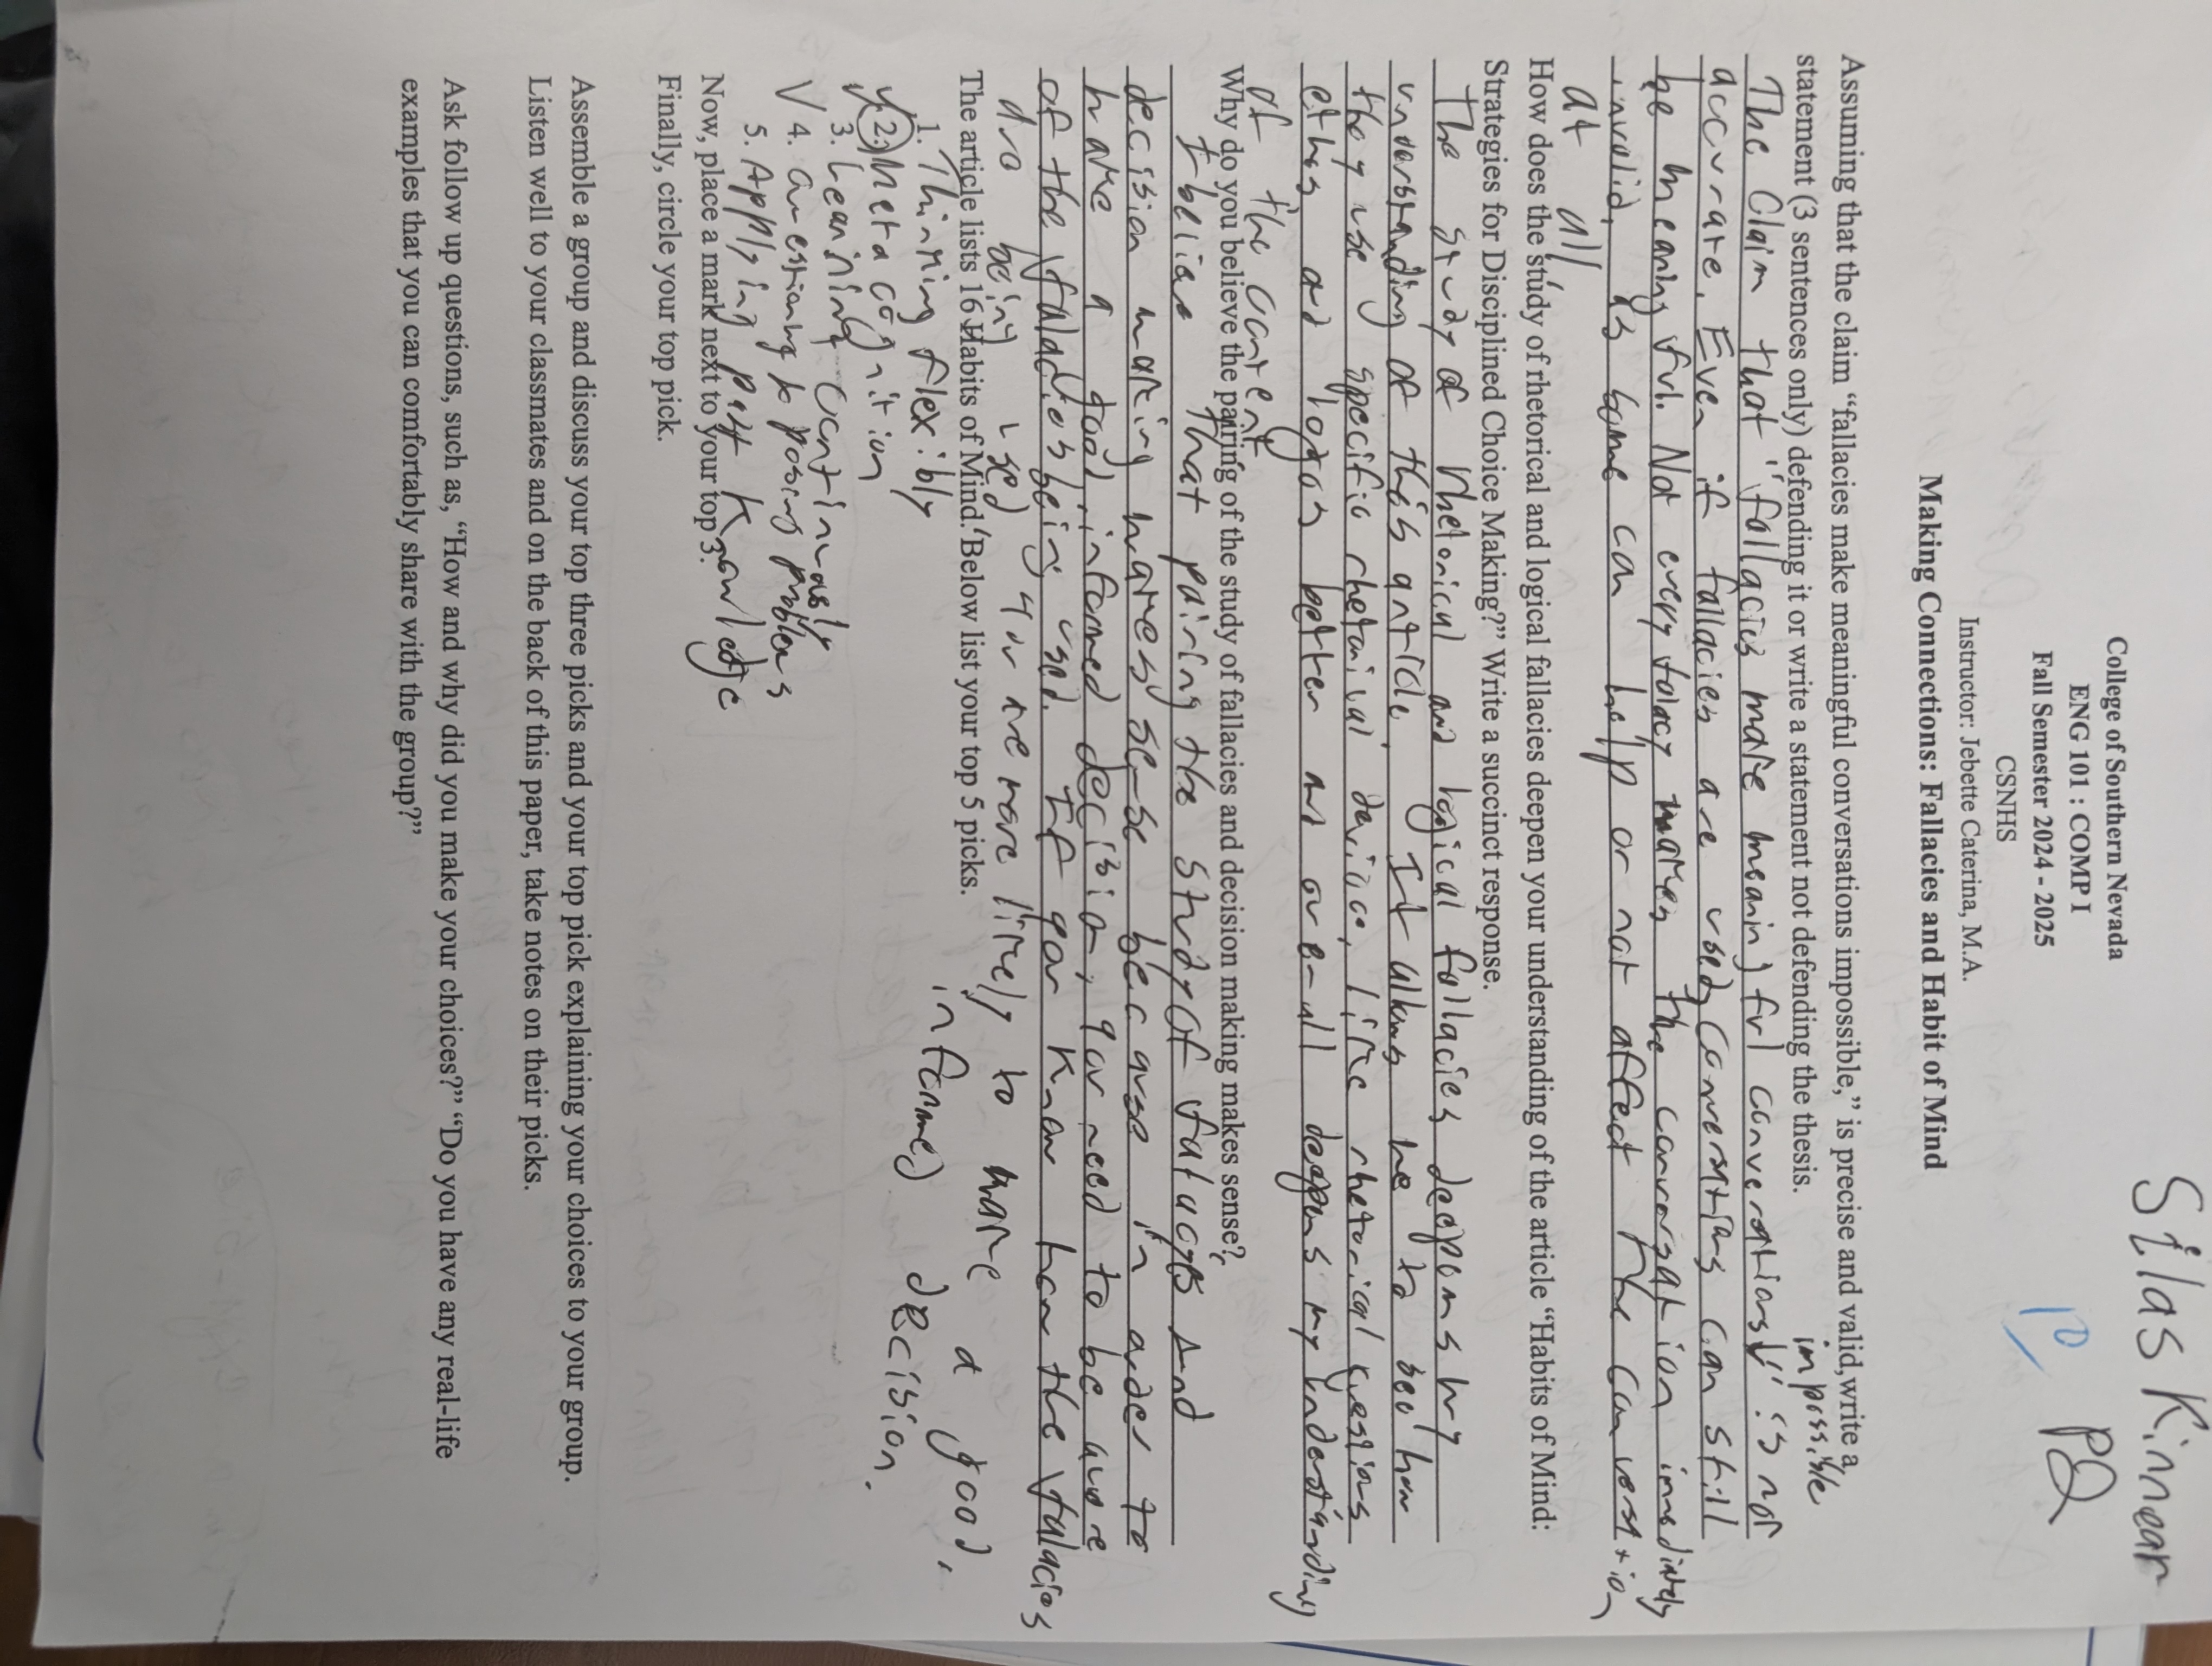 Silas Kinnear
PQ
10
College of Southern Nevada
ENG 101 : COMP I
Fall Semester 2024 - 2025
CSNHS
Instructor: Jebette Caterina, M.A.
Making Connections: Fallacies and Habit of Mind
Assuming that the claim “fallacies make meaningful conversations impossible,” is precise and valid,write a
statement (3 sentences only) defending it or write a statement not defending the thesis.
impossible
The Claim that "fallacies make meaningful conversations" is not
accurate. Even if fallacies are used, conversations can still
be meaningful. Not every falacy makes the conversation immediately
invalid, as some can help or not affect the conversation
at all.
How does the study of rhetorical and logical fallacies deepen your understanding of the article “Habits of Mind:
Strategies for Disciplined Choice Making?” Write a succinct response.
The study of rhetorical and logical fallacies deepens my
understanding of this article. It allows me to see how
they use specific rhetorical device, like rhetorical questions,
ethos, and logos better and over-all deepens my understanding
of the content.
Why do you believe the pairing of the study of fallacies and decision making makes sense?
I believe that pairing the study of falacies and
decision making makes sense because in order to
make a good, informed decision, you need to be aware
of the faladies being used. If you know how the falacies
are being used, you are more likely to make a good,
informed decision.
The article lists 16 Habits of Mind. Below list your top 5 picks.
1. Thinking flexibly
2. Meta cognition
3. Learning continuously
4. Questioning & posing problems
5. Applying past knowledge
Now, place a mark next to your top 3.
Finally, circle your top pick.
Assemble a group and discuss your top three picks and your top pick explaining your choices to your group.
Listen well to your classmates and on the back of this paper, take notes on their picks.
Ask follow up questions, such as, “How and why did you make your choices?” “Do you have any real-life
examples that you can comfortably share with the group?”